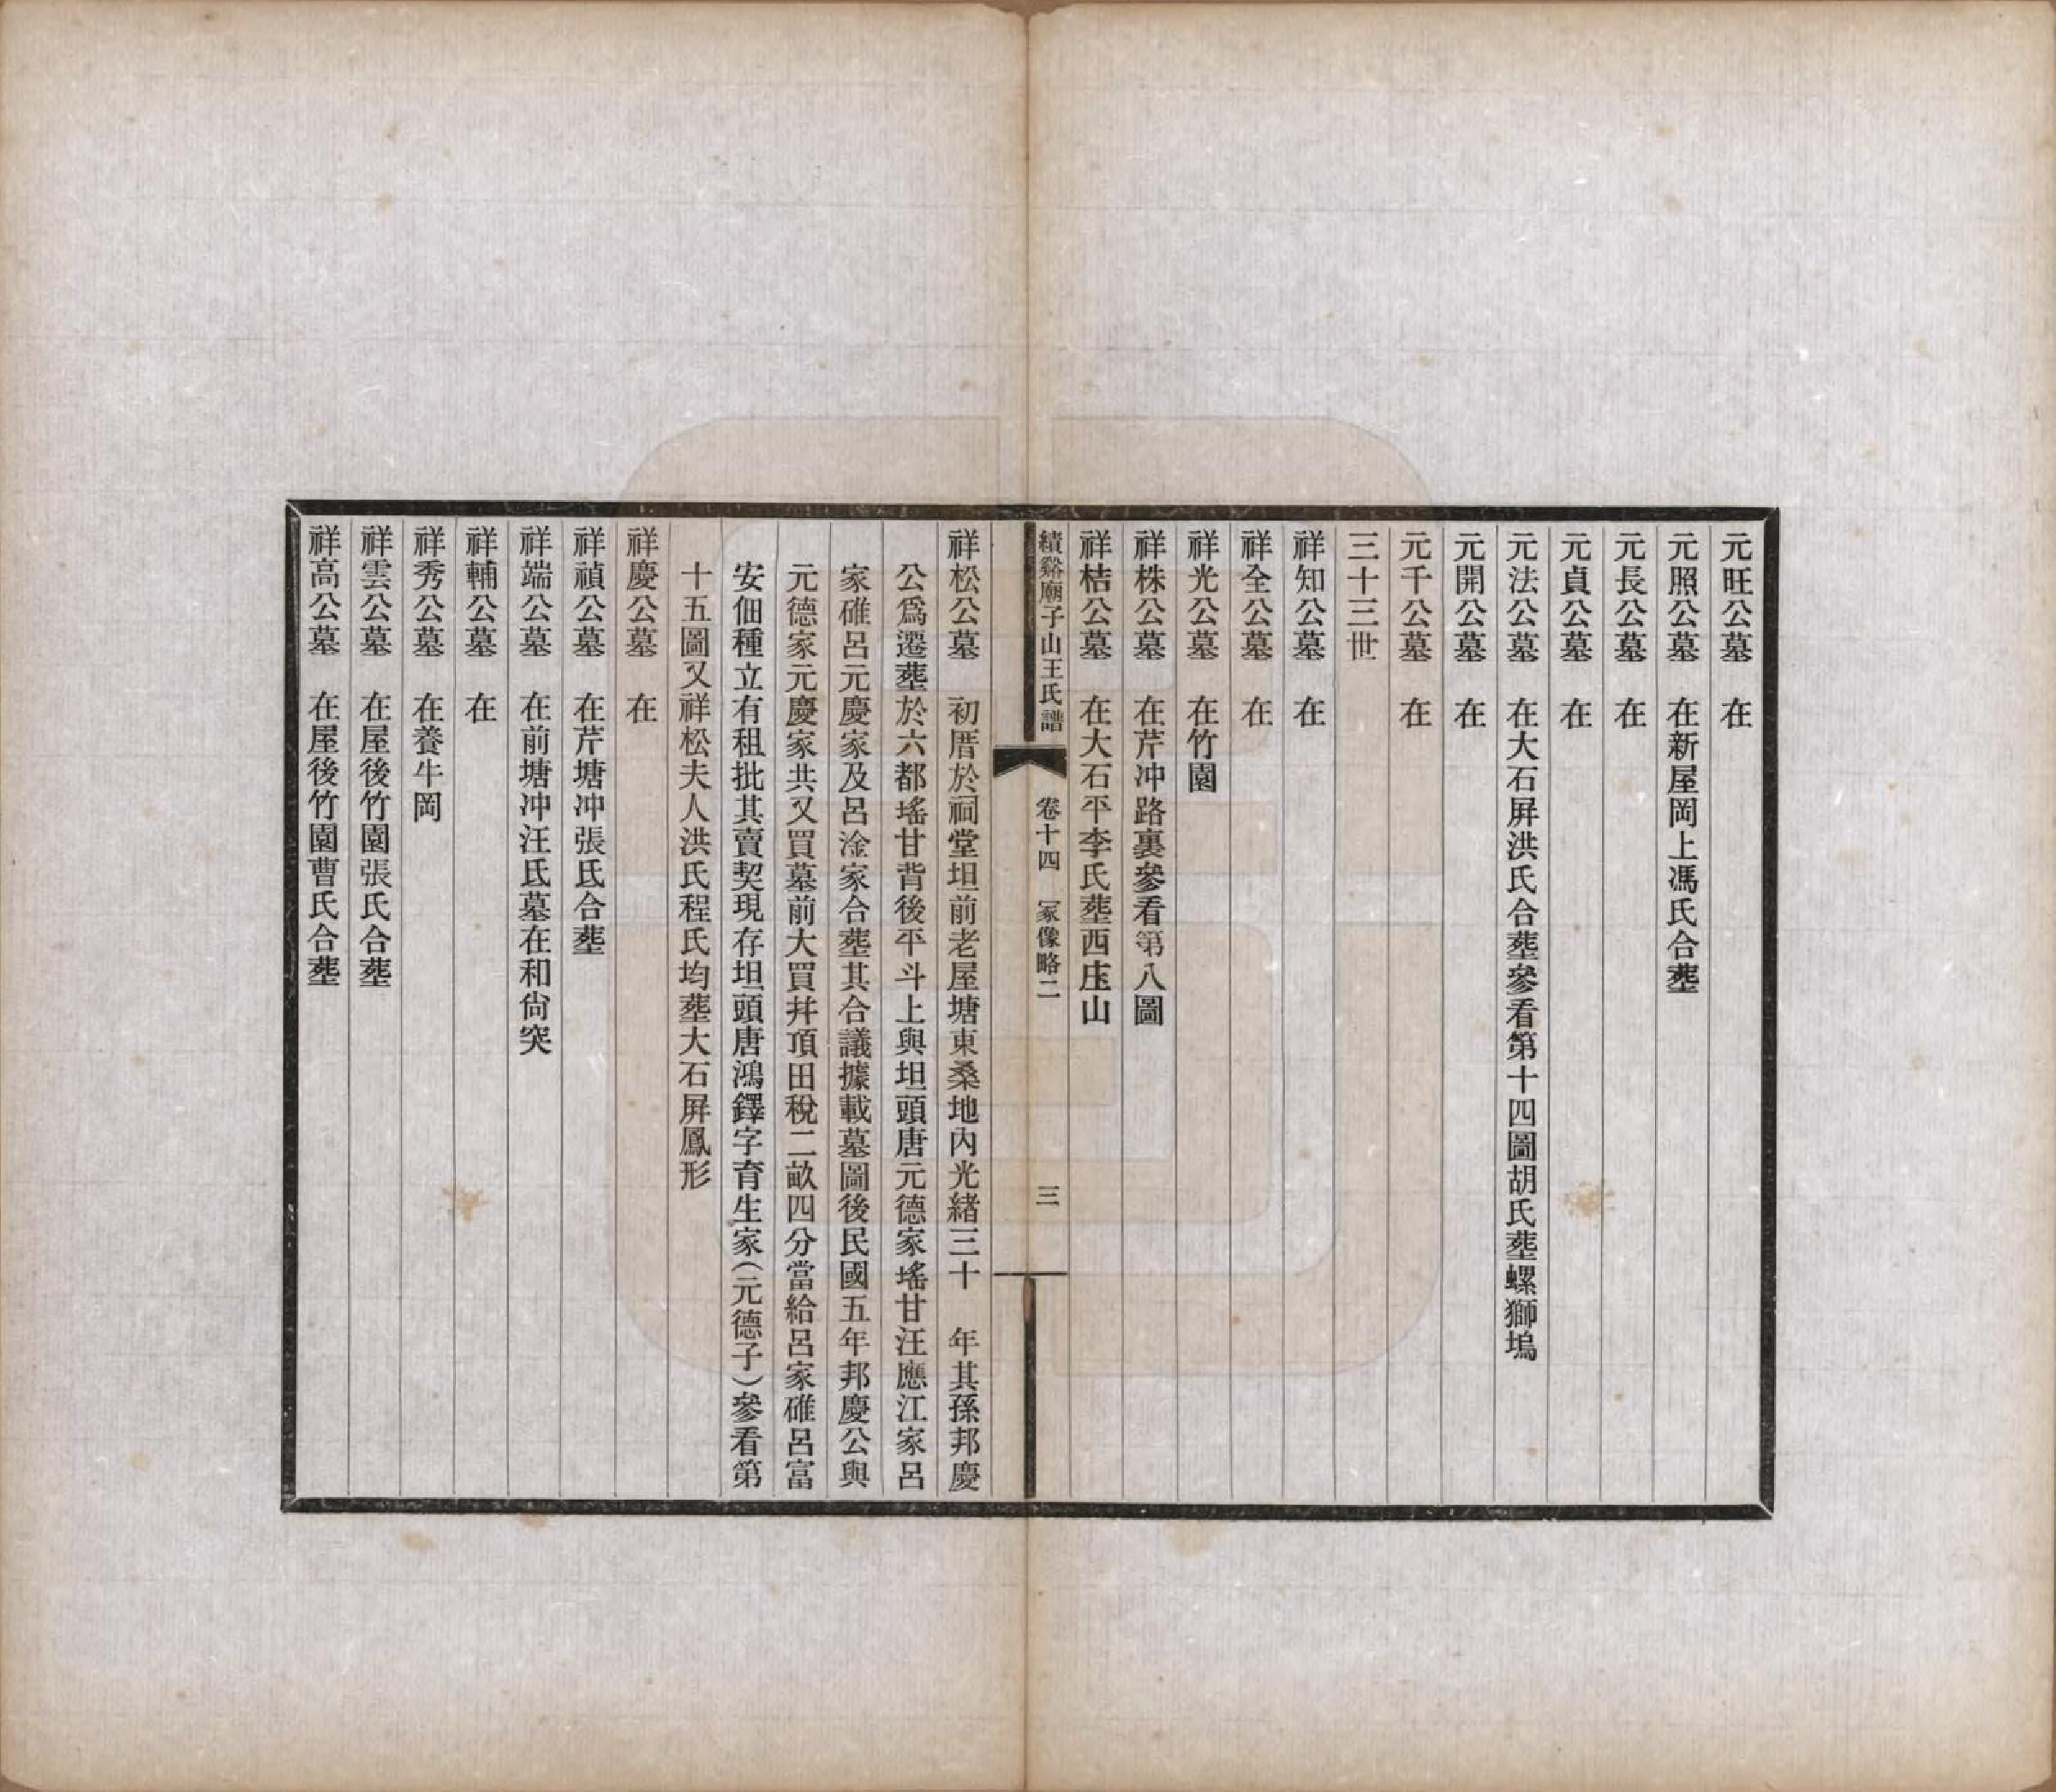 元旺公墓　在
元照公墓　在新屋岡上馮氏合塟
元長公墓　在
元貞公墓　在
元法公墓　在大石屛洪氏合塟參看第十四圖胡氏塟螺獅塢
元開公墓　在
元千公墓　在
三十三世
祥知公墓　在
祥全公墓　在
祥光公墓　在竹園
祥株公墓　在芹冲路裏參看第八圖
祥桔公墓　在大石平李氏塟西庄山
績谿廟子山王氏譜　卷十四　冢像略二　三
祥松公墓　初厝於祠堂坦前老屋塘東桑地內光緒三十　年其孫邦慶
公爲遷塟於六都瑤甘背後平斗上與坦頭唐元德家瑤甘汪應江家呂
家碓呂元慶家及呂淦家合塟其合議據載墓圖後民國五年邦慶公與
元德家元慶家共又買墓前大買幷頂田稅二畝四分當給呂家碓呂富
安佃種立有租批其賣契現存坦頭唐鴻鐸字育生家（元德子）參看第
十五圖又祥松夫人洪氏程氏均塟大石屛鳳形
祥慶公墓　在
祥禎公墓　在芹塘冲張氏合塟
祥端公墓　在前塘冲汪氏墓在和尙突
祥輔公墓　在
祥秀公墓　在養牛岡
祥雲公墓　在屋後竹園張氏合塟
祥高公墓　在屋後竹園曹氏合塟